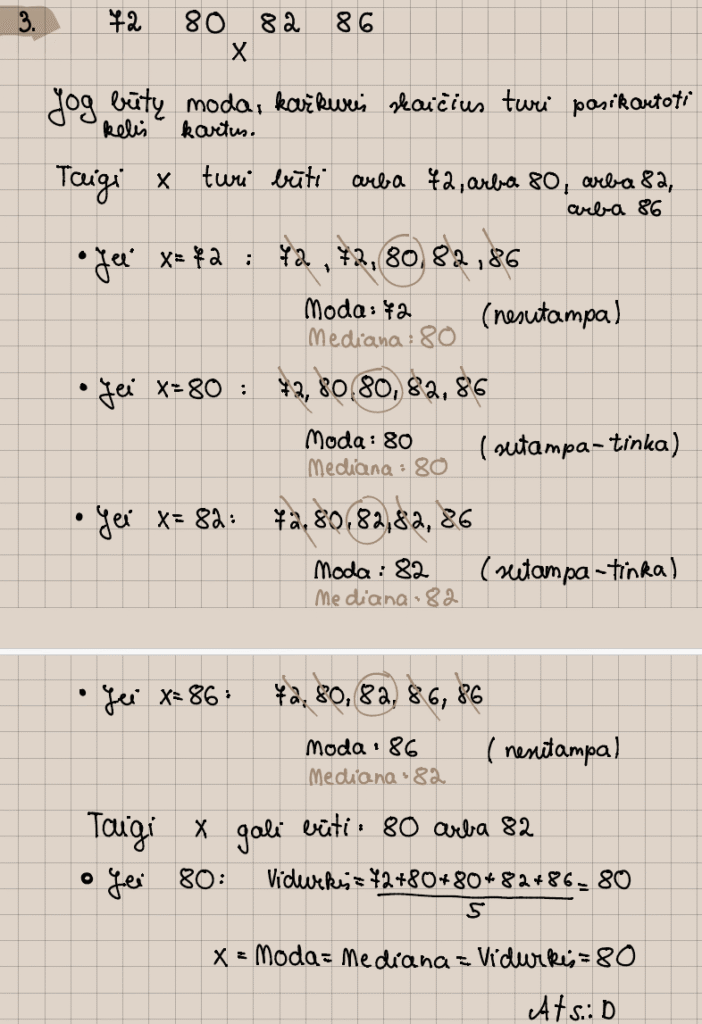 3. 72 80 82 86
x
Jog būtų moda, kažkuris skaičius turi pasikartoti
kelis kartus.
Taigi x turi būti arba 72, arba 80, arba 82,
arba 86
• Jei x=72 : 72, 72, 80, 82, 86
Moda: 72 (nesutampa)
Mediana: 80
• Jei x=80 : 72, 80, 80, 82, 86
Moda: 80 (sutampa-tinka)
Mediana: 80
• Jei x=82: 72, 80, 82, 82, 86
Moda: 82 (sutampa-tinka)
Mediana: 82
• Jei x=86: 72, 80, 82, 86, 86
Moda: 86 (nesutampa)
Mediana: 82
Taigi x gali būti: 80 arba 82
• Jei 80: Vidurkis = 72+80+80+82+86 = 80
5
x = Moda = Mediana = Vidurkis = 80
Ats.: D